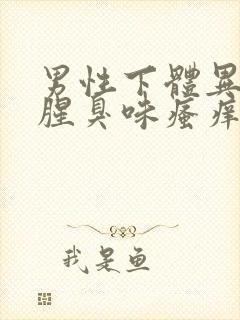 男性下體異
腥臭味瘙痒
我是鱼